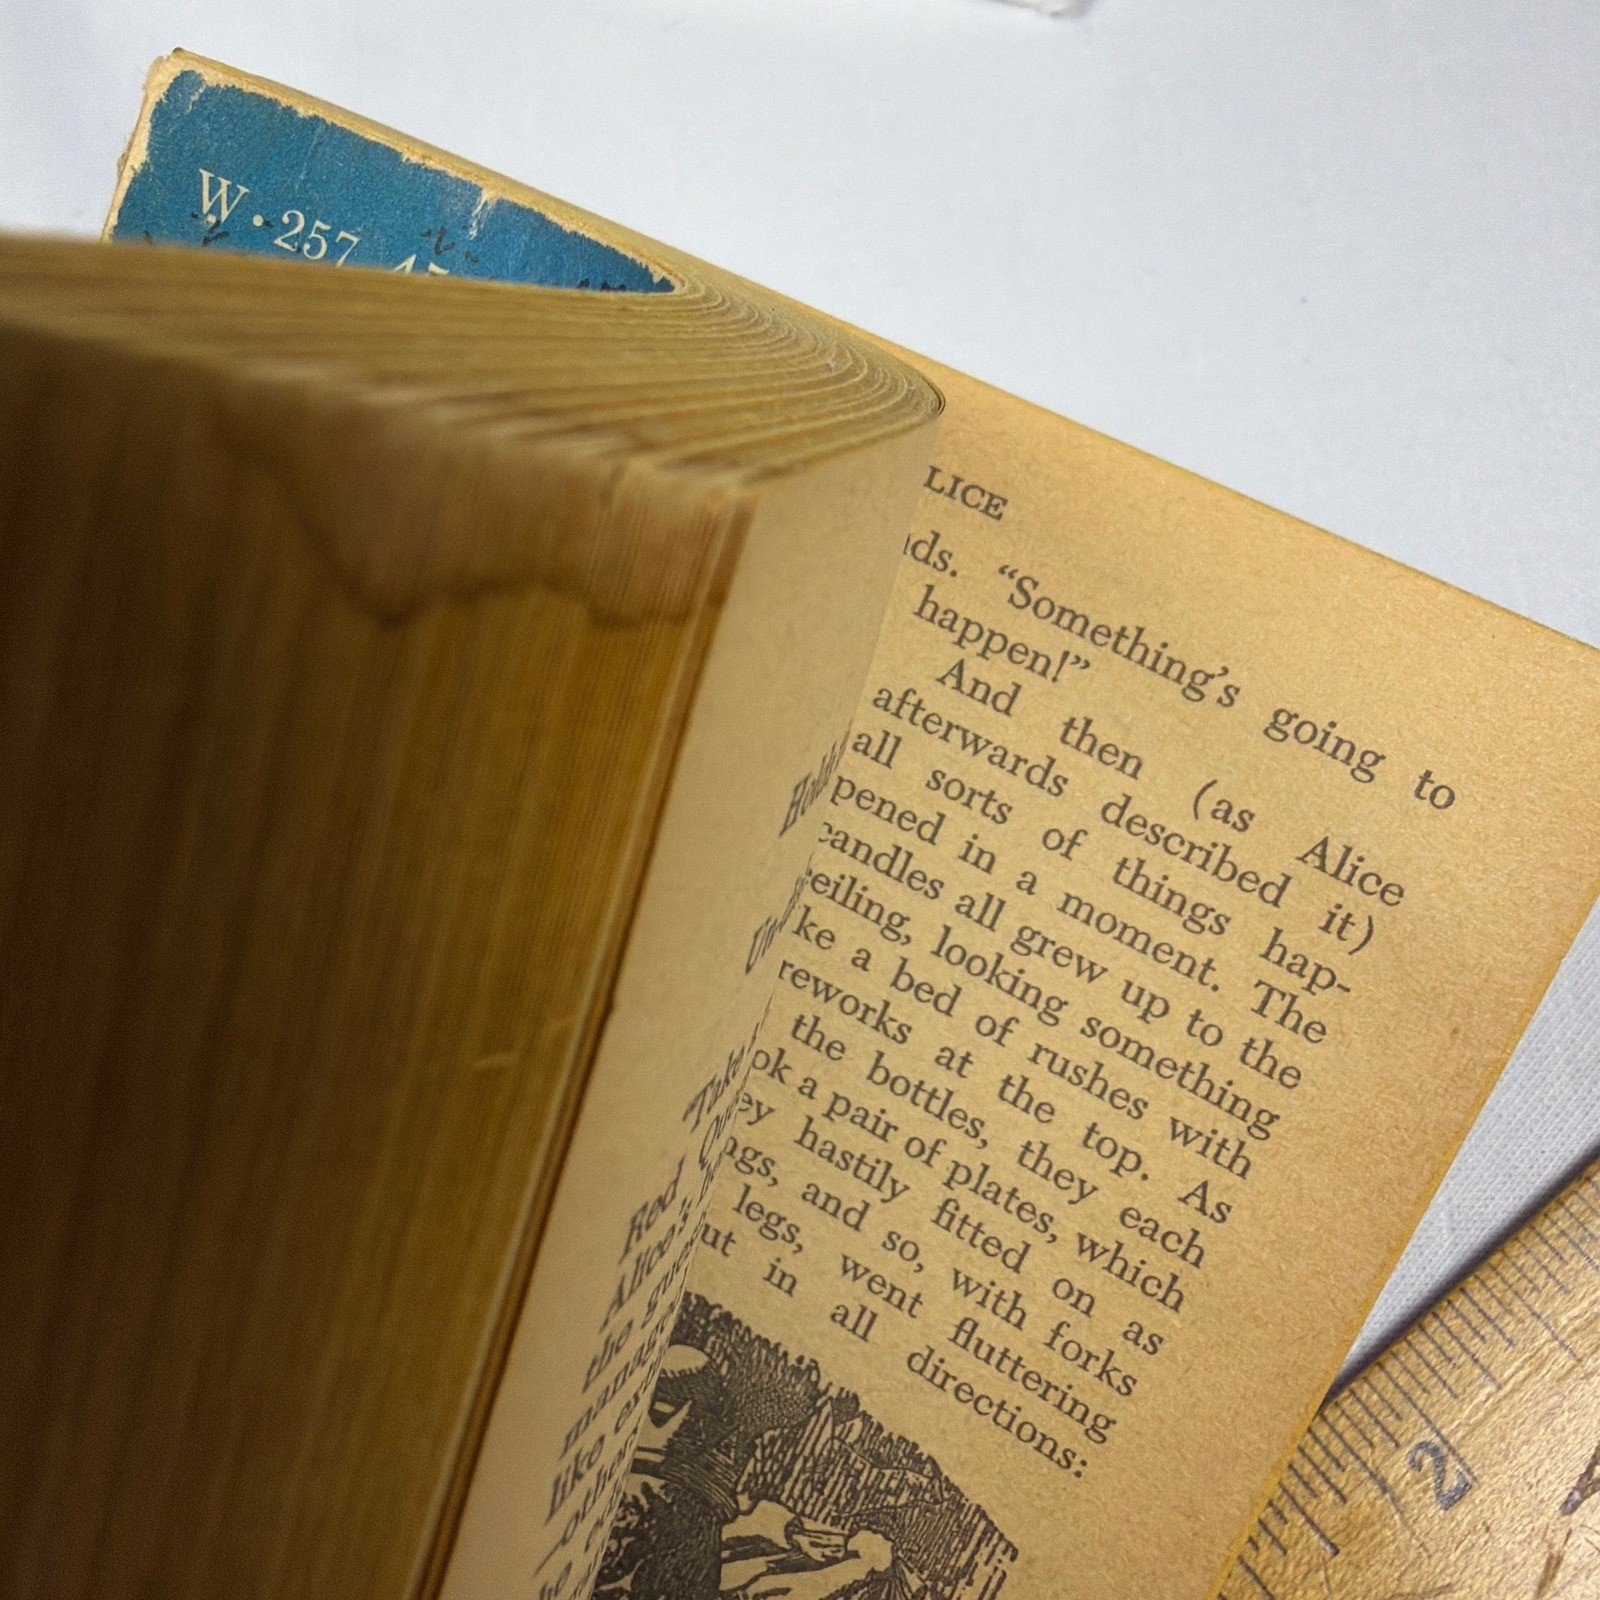 W·257
LICE
"Something's going to
happen!"
And then (as Alice
afterwards described it)
all sorts of things hap-
pened in a moment. The
candles all grew up to the
eiling, looking something
ke a bed of rushes with
reworks at the top. As
the bottles, they each
ok a pair of plates, which
ey hastily fitted on as
ngs, and so, with forks
legs, went fluttering
ut in all directions:
"Take
Red
Alice's
the
like
2